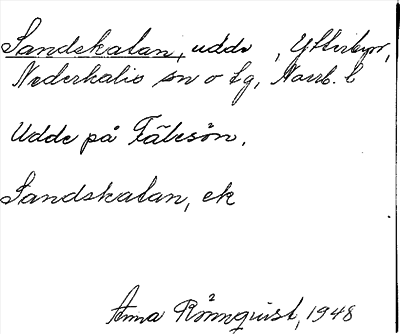 Sandskatan, udde, Ytterbyn,
Nederkalix sn o tg, Norrb. l
Udde på Tåtesön.
Sandskatan, ek
Anna Rönnquist, 1948